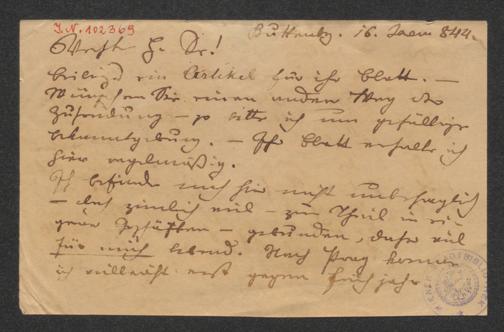 J.N. 102369
Buttenbg. 16. Jaen 844.
Werth. H. Dr!
beiliegd ein Artikel für ihr Blatt. —
Wünschen Sie einen andern Weg der
Zusendung — so bitte ich um gefällige
bekanntgebung. — Ihr Blatt erhalte ich
hier regelmäßig.
Ich befinde mich hier nicht unbehaglich
— des ziemlich viel — zum Theil in
gene Geschäften — gebunden, daher viel
für mich lebend. Nach Prag komme
ich vielleicht erst gegen Frühjahr